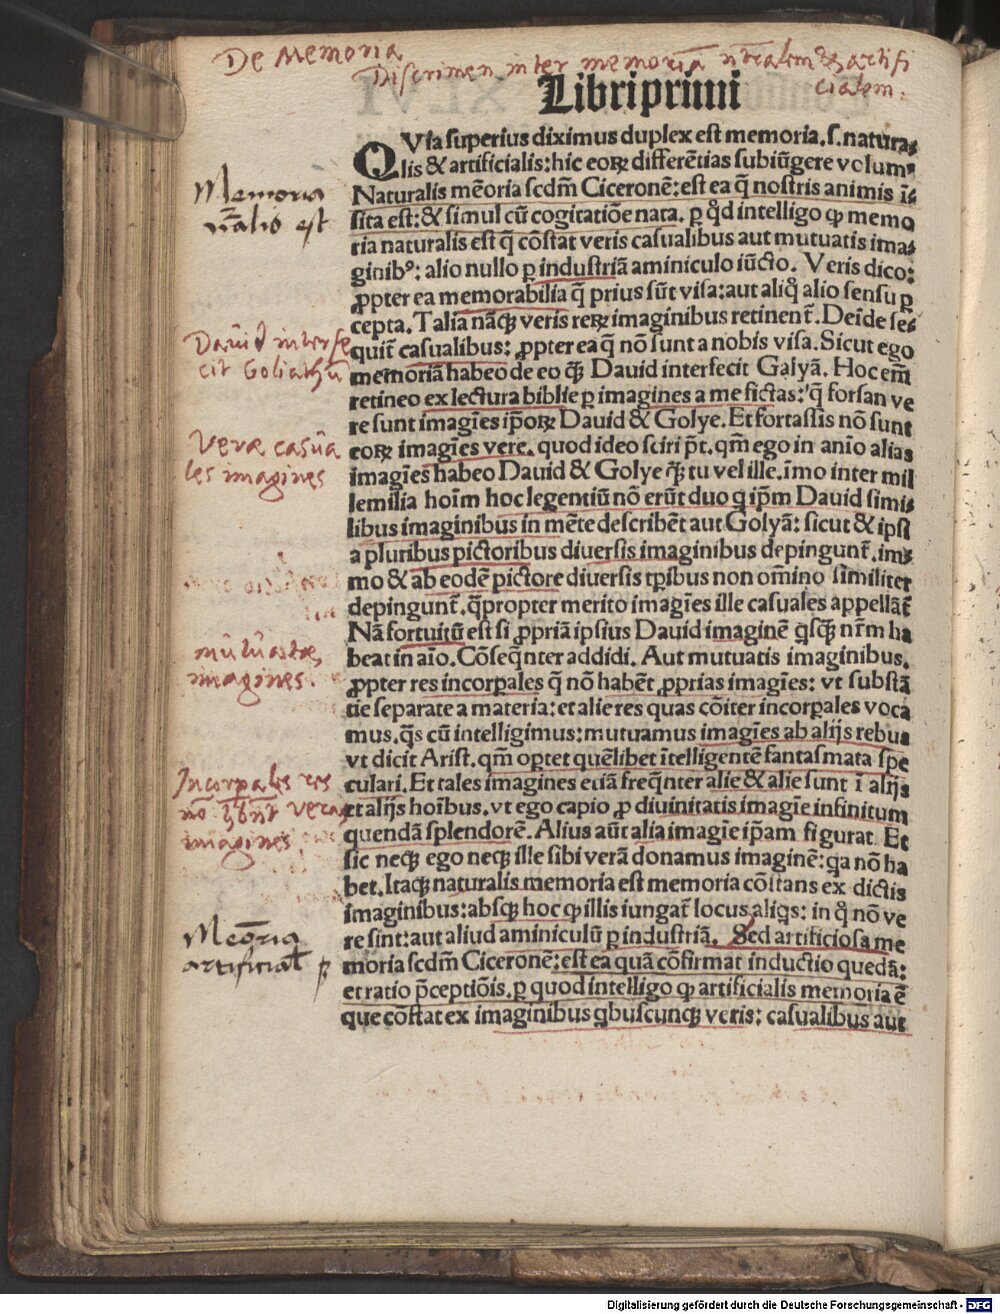 De Memoria
Discrimen inter memoriā n̄ralem & artifi
cialem.
Libri primi
QVia superius diximus duplex est memoria. s. natura⸗
lis & artificialis: hic eoꝝ differētias subiūgere volumꝰ
Naturalis mēoria scdm̄ Ciceronē: est ea q̄ nostris animis ī⸗
sita est: & simul cū cogitatiōe nata. ꝑ qd̓ intelligo ꝙ memo
ria naturalis est q̄ cōstat veris casualibus aut mutuatis ima⸗
ginibꝰ: alio nullo ꝑ industriā aminiculo iūcto. Veris dico:
ꝓpter ea memorabilia q̄ prius sūt visa: aut aliq̊ alio sensu ꝑ
cepta. Talia nāꝙ veris reꝝ imaginibus retinent̄. Deīde se⸗
quit̄ casualibus: ꝓpter ea q̄ nō sunt a nobis visa. Sicut ego
memoriā habeo de eo ꝙ Dauid interfecit Galyā. Hoc em̄
retineo ex lectura biblie ꝑ imagines a me fictas: q̄ forsan ve
re sunt imagīes ip̄oꝝ Dauid & Golye. Et fortassis nō sunt
eoꝝ imagīes vere. quod ideo sciri p̄t. qm̄ ego in anīo alias
imagīes habeo Dauid & Golye ꝙ̄ tu vel ille. īmo inter mil
lemilia hoīm hoc legentiū nō erūt duo q ip̄m Dauid simi⸗
libus imaginibus in mēte describēt aut Golyā: sicut & ipsi
a pluribus pictoribus diuersis imaginibus depingunt̄. im⸗
mo & ab eodē pictore diuersis tp̄ibus non om̄ino similiter
depingunt̄. q̄propter merito imagīes ille casuales appellāt̄
Nā fortuitū est si ꝓpriā ipsius Dauid imaginē qsꝙ nr̄m ha
beat in aīo. Cōseq̄nter addidi. Aut mutuatis imaginibus.
ꝓpter res incorꝑales q̄ nō habēt ꝓprias imagīes: vt substā
tie separate a materia: et alie res quas cōiter incorꝑales voca
mus. q̄s cū intelligimus: mutuamus imagīes ab alijs rebus
vt dicit Arist. qm̄ oꝑtet quēlibet ītelligentē fantasmata spe
culari. Et tales imagines etiā freq̄nter alie & alie sunt ī alijs
et alijs hoībus. vt ego capio ꝓ diuinitatis imagīe infinitum
quendā splendorē. Alius aūt alia imagīe ip̄am figurat. Et
sic neqꝫ ego neqꝫ ille sibi verā donamus imaginē: qa nō ha
bet. Itaqꝫ naturalis memoria est memoria cōstans ex dictis
imaginibus: absqꝫ hoc ꝙ illis iungat̄ locus aliqs: in q̊ nō ve
re sint: aut aliud aminiculū ꝑ industriā. Sed artificiosa me
moria scdm̄ Ciceronē: est ea quā cōfirmat inductio quedā:
et ratio p̄ceptiōis. ꝑ quod intelligo ꝙ artificialis memoria ē
que cōstat ex imaginibus qbuscunqꝫ veris: casualibus aut
Memoria
n̄ralis est
Dauid interfe
cit Goliathū
Veræ casūa
les imagines
mutuatæ
imagines.
Incorꝑales res
nō hb̄nt veras
imagines.
Meōria
artificial̄
Digitalisierung gefördert durch die Deutsche Forschungsgemeinschaft - DFG